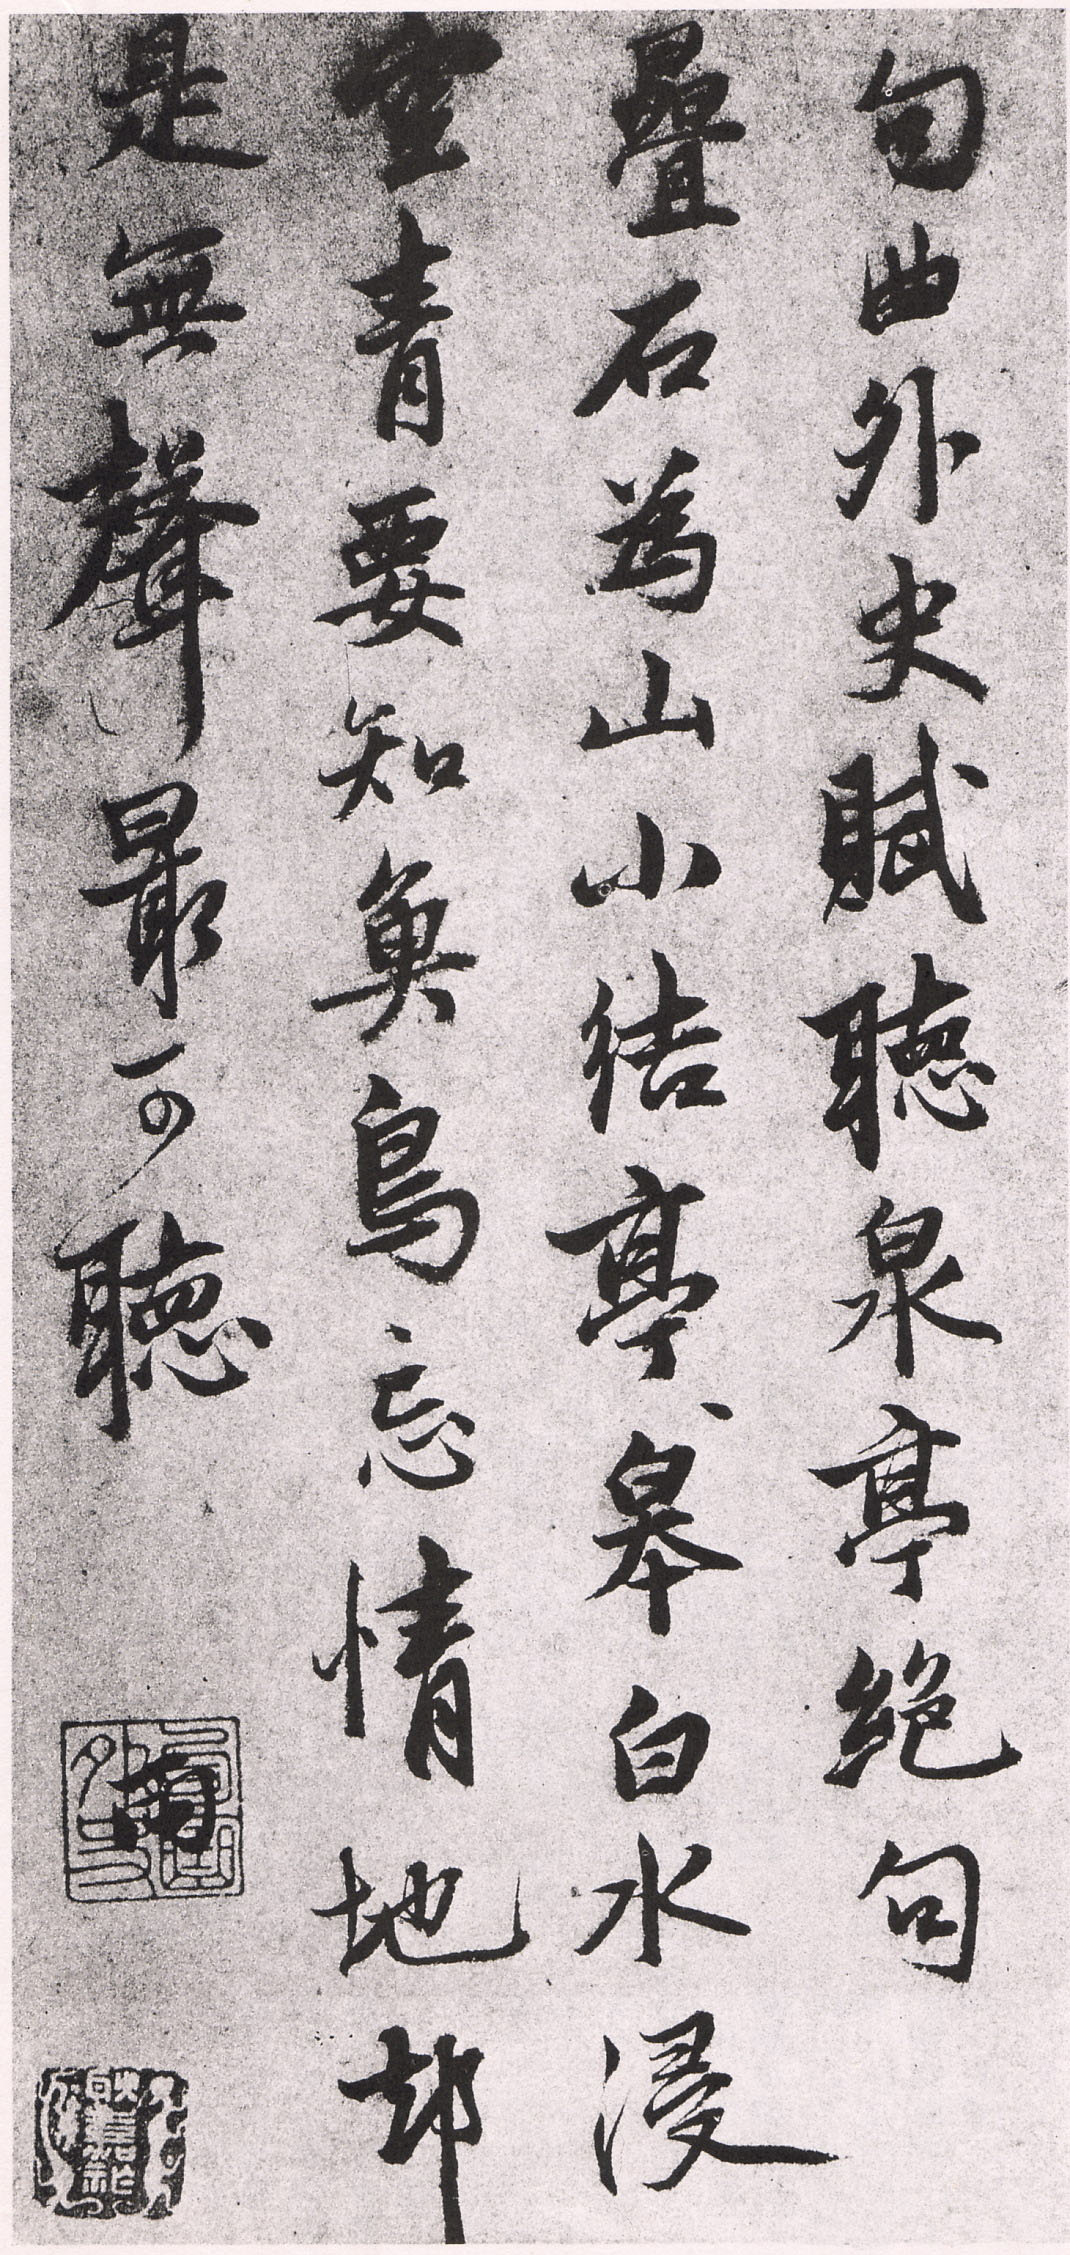 句曲外史賦聽泉亭絕句
疊石為山小結亭、皋白水浸
空青要知魚鳥忘情地却
是無聲最可聽
雨
句曲外史